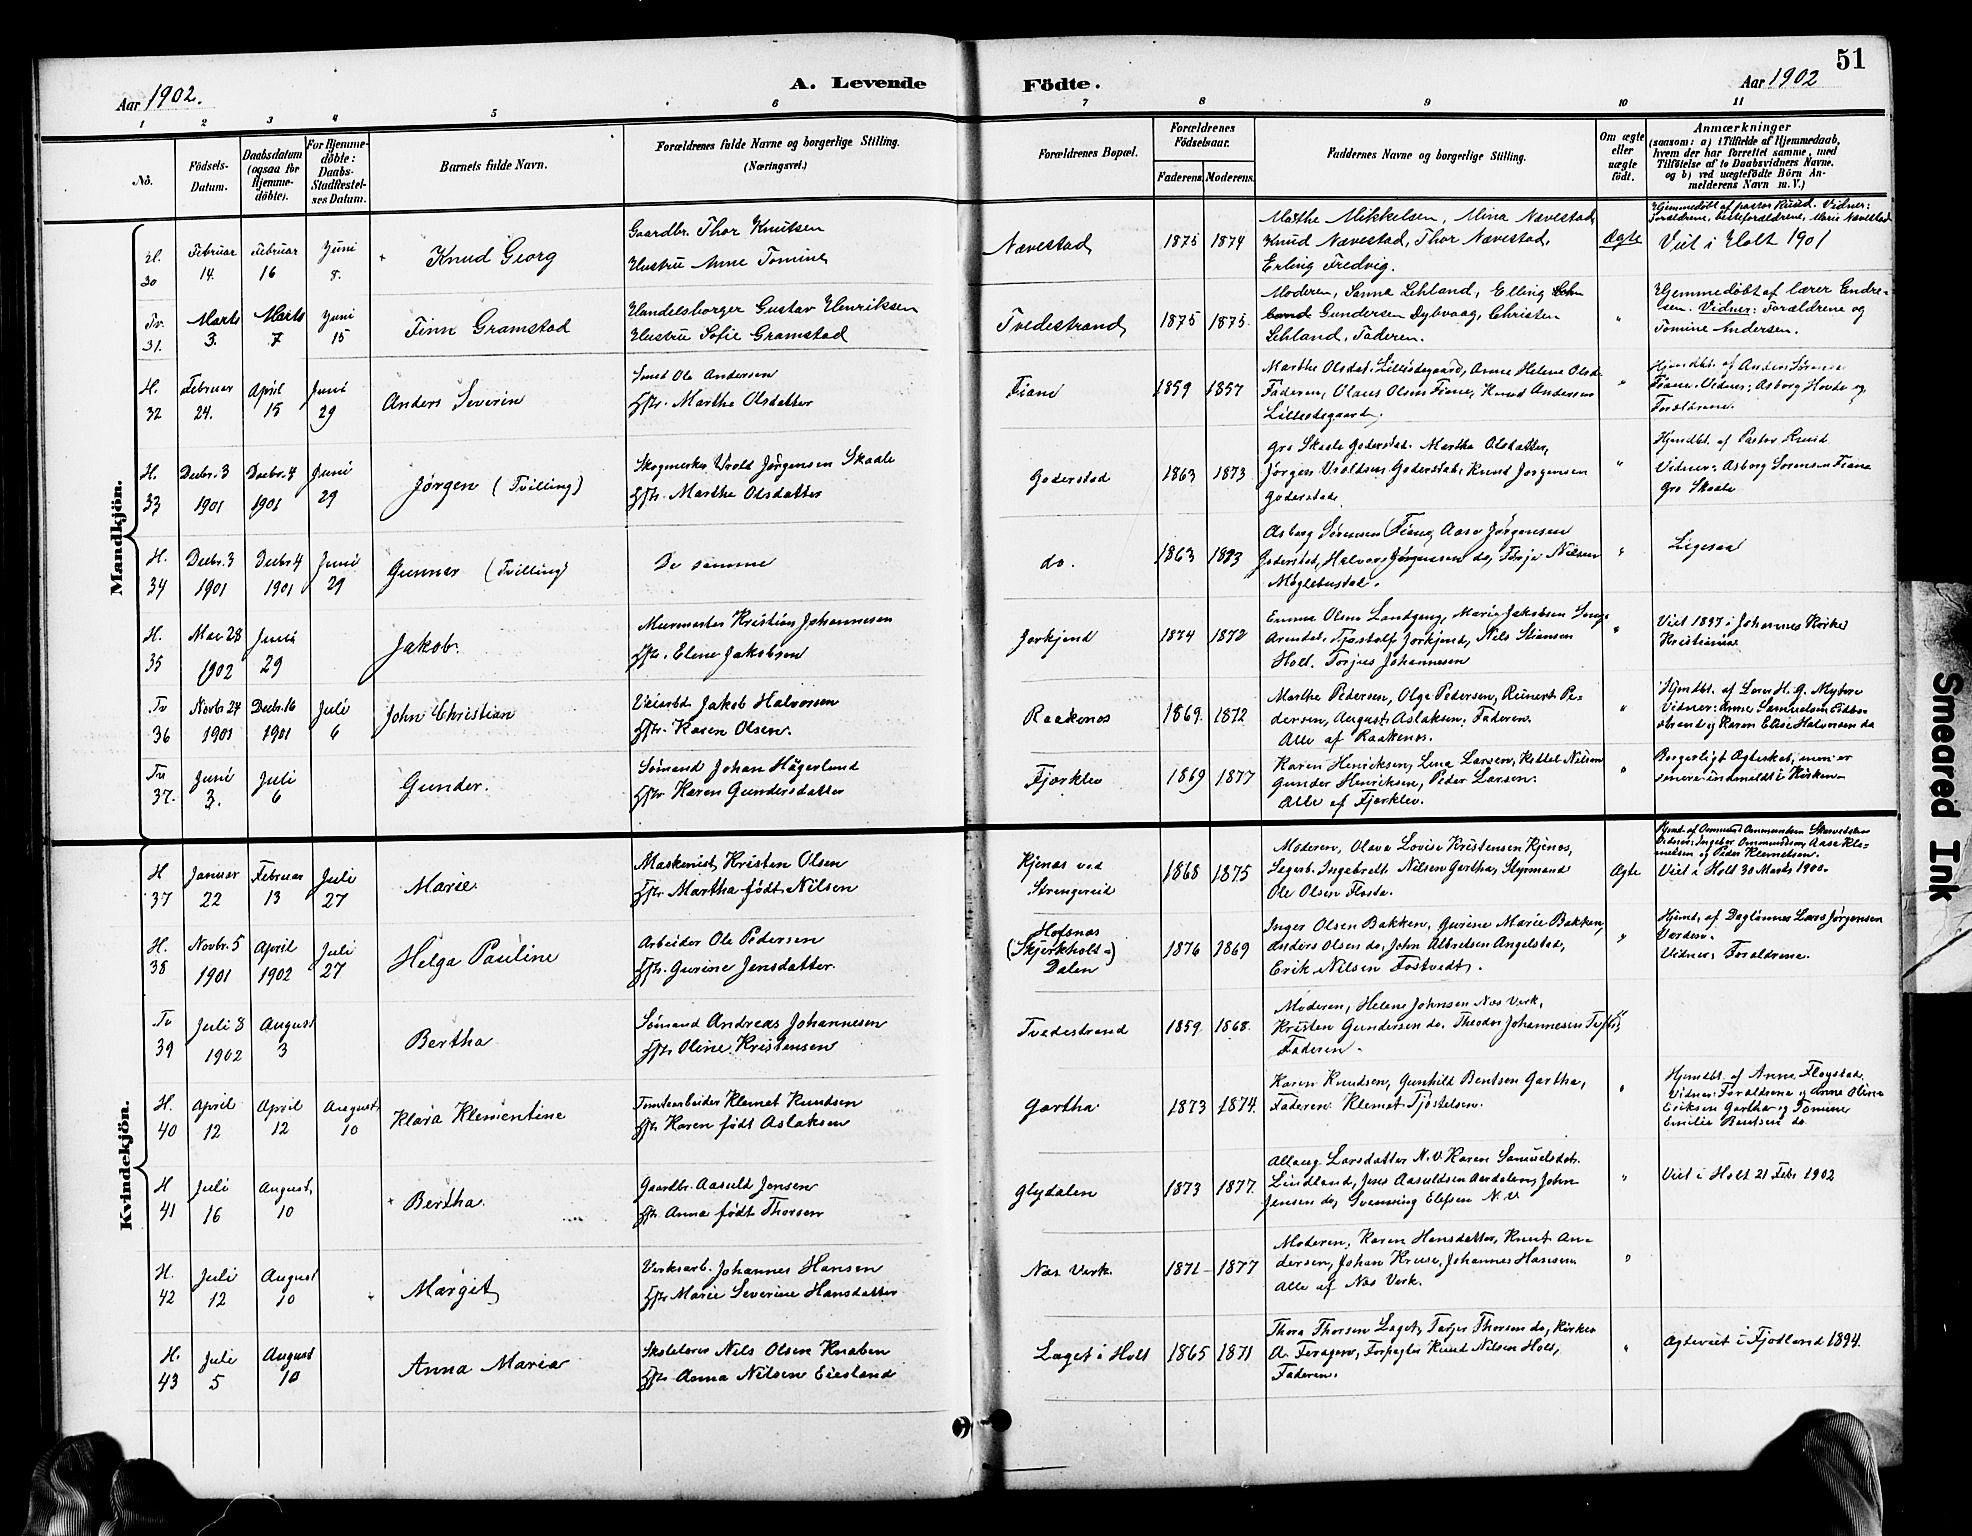 51
Aar 1902.
A. Levende Födte.
Aar 1902
1 2 3 4 5 6 7 8 9 10 11
No.
Födsels-Datum.
Daabsdatum (ogsaa for Hjemmedöbte).
For Hjemmedöbte: Daabs-Stadfæstelses Datum.
Barnets fulde Navn.
Forældrenes fulde Navne og borgerlige Stilling. (Næringsvei.)
Forældrenes Bopæl.
Forældrenes Födselsaar.
Faderens Moderens.
Faddernes Navne og borgerlige Stilling.
Om ægte eller uægte födt.
Anmærkninger
(saasom: a) i Tilfælde af Hjemmedaab, hvem der har forrettet samme, med Tilföielse af to Daabsvidners Navne. og b) ved uægtefödte Börn Anmelderens Navn m. V.)
Mandkjön.
H. 30
Februar 14.
Februar 16
Juni 8.
Knud Georg
Gaardbr. Thor Knutsen
Hustru Anne Tomine
Nævestad
1875 1874
Marthe Mikkelsen, Mina Nævestad,
Knud Nævestad, Thor Nævestad,
Erling Fredvig.
Ægte
Hjemmedøbt af pastor Ruud. Vidner:
Forældrene, bedsteforældrene, Marie Nævestad
Viet i Holt 1901
Tv. 31.
Marts 3.
Marts 7
Juni 15
Finn Gramstad
Handelsborger Gustav Henriksen
Hustru Sofie Gramstad
Tvedestrand
1875 1875.
Moderen, Sanna Lehland, Elling
Gundersen Dybvaag, Christen
Lehland, Faderen.
"
Hjemmedøbt af lærer Endresen. Vidner: Forældrene og
Tomine Andersen.
H. 32
Februar 24.
April 15
Juni 29
Anders Severin
Smed Ole Andersen
Hstr. Marthe Olsdatter
Fiane
1859 1857
Marthe Olsdat. Lilleødegaard, Anne Helene Olsd.
Faderen, Olaus Olsen Fiane, Knud Andersen
"
Hjmdbt. af Anders Sørensen
Fiane. Vidner: Asborg Hovde og
Forældrene.
H. 33
Decbr. 3 1901
Decbr. 4 1901
Juni 29
Jørgen (Tvilling)
Jørgensen Skaale
Hstr. Marthe Olsdatter
Goderstad
1863 1873
Gro Skaale Goderstad. Martha Olsdatter,
Jørgen Vroldsen Goderstad, Knud Jørgensen
Goderstad
"
Hjmdbt. af Pastor Ruud
Vidner: Asborg Sørensen Fiane
Gro Skaale
H. 34
Decbr. 3 1901
Decbr. 4 1901
Juni 29
Gunner (Tvilling)
De samme
do.
1863 1873
Asborg Sørensen Fiane, Aase Jørgensen
Goderstad, Halvor Jørgensen do, Terje Nilsen
Møglebustad.
"
Ligesaa
H. 35
Mai 28 1902
Juni 29
Jakob.
Murmester Kristian Johannesen
Hstr. Elene Jakobsen
Jorkjend
1874 1872
Emma Olene Landgeng, Marie Jakobsen
Arendal, Tjøstolf Jorkjend, Nils Stiansen
Holt. Torjus Johannesen
"
Viet 1897 i Johannes Kirke
Kristiania
Tv 36
Novbr. 24 1901
Decbr. 16 1901
Juli 6
John Christian
Veiarbd Jakob Halvorsen
Hstr. Karen Olsen.
Raakenes
1869. 1872
Marthe Pedersen, Olga Pedersen, Reinert Pedersen, August Aslaksen, Faderen.
Alle af Raakenes.
"
Hjmdbt. af Lærer H. G. Myhre
Vidner: Anne Samuelsen
og Karen Elise Halvorsen do
Tv 37.
Juni 3.
Juli 6
Gunder.
Sømand Johan Hägerlund
Hstr Karen Gundersdatter
Fjærklev
1869 1877
Karen Henriksen, Lena Larsen, Kittel Nilsen
Gunder Henriksen, Peder Larsen.
Alle af Fjærklev.
"
Borgerligt Ægteskab, men er
senere indmeldt i Kirken
Kvindekjön.
H 37
Januar 22
Februar 13
Juli 27
Marie
Maskenist Kristen Olsen
Hstr. Martha født Nilsen
Kjenas ved
Strengereid
1868 1875
Moderen, Olava Lovise Kristensen Kjenas,
Ingebrelt Nilsen Gartha, Styrmand
Ole Olsen Flosta.
Ægte
Hjmd. af Ommund Ommundsen
Vidner: Ingebor Ommundsen, Aase Klemetsen og Peder Klemetsen.
Viet i Holt 30 Marts 1900.
H. 38
Novbr. 5 1901
April 1902
Juli 27
Helga Pauline
Arbeider Ole Pedersen
Hstr. Gurine Jensdatter.
Hofsnas
(Skjerkholt)
Dalen
1876 1869
Inger Olsen Bakken, Gurine Marie Bakken,
Anders Olsen do, John Albretsen Angelstad,
Erik Nilsen Fostvedt.
"
Hjmd. af Daglønner Lars Jørgensen
Vidner: Forældrene.
Tv 39
Juli 8 1902
August 3
Bertha
Sømand Andreas Johannesen
Hstr Oline Kristensen
Tvedestrand
1859. 1868.
Moderen, Helene Johnsen Nas Verk,
Kristen Gundersen do. Theodor Johannesen
Faderen.
"
H. 40
April 12
April 12
August 10
Klara Klementine
Tomtearbeider Klemet Knudsen
Hstr. Karen født Aslaksen
Gartha
1873 1874.
Karen Knudsen, Gunhild Bentsen Gartha,
Faderen. Klemet Tjøstelsen.
"
Hjmdbt. af Anne Fløystad.
Vidner: Forældrene og Anne Oline
Eriksen Gartha og Tomine
Emilie Bentsen do
H 41
Juli 16
August 10
Bertha.
Gaardbr. Aasuld Jensen
Hstr. Anna født Thorsen
Glydalen
1873 1877.
Allaug Larsdatter N.V. Karen Samuelsdat.
Lindland, Jens Aasuldsen Aardalen, John
Jensen do, Svenning Elefsen N.V
"
Viet i Holt 21 Febr 1902
H. 42
Juli 12
August 10
Margit
Verksarb. Johannes Hansen
Hstr Marie Severine Hansdatter
Nas Verk.
1871 1877
Moderen, Karen Hansdatter, Knut Andersen, Johan Kruse, Johannes Hansen.
Alle af Nas Verk.
"
H. 43
Juli 5
August 10
Anna Maria
Skolelærer Nils Olsen Knaben
Hstr. Anna Nilsen Eiesland
Laget i Holt
1865 1871
Thora Thorsen Laget, Terjer Thorsen do, Kirkes.
A. Fergerv, Forpagter Knud Nilsen Holt,
Faderen.
"
Ægteviet i Fjotland 1894.
Smeared Ink